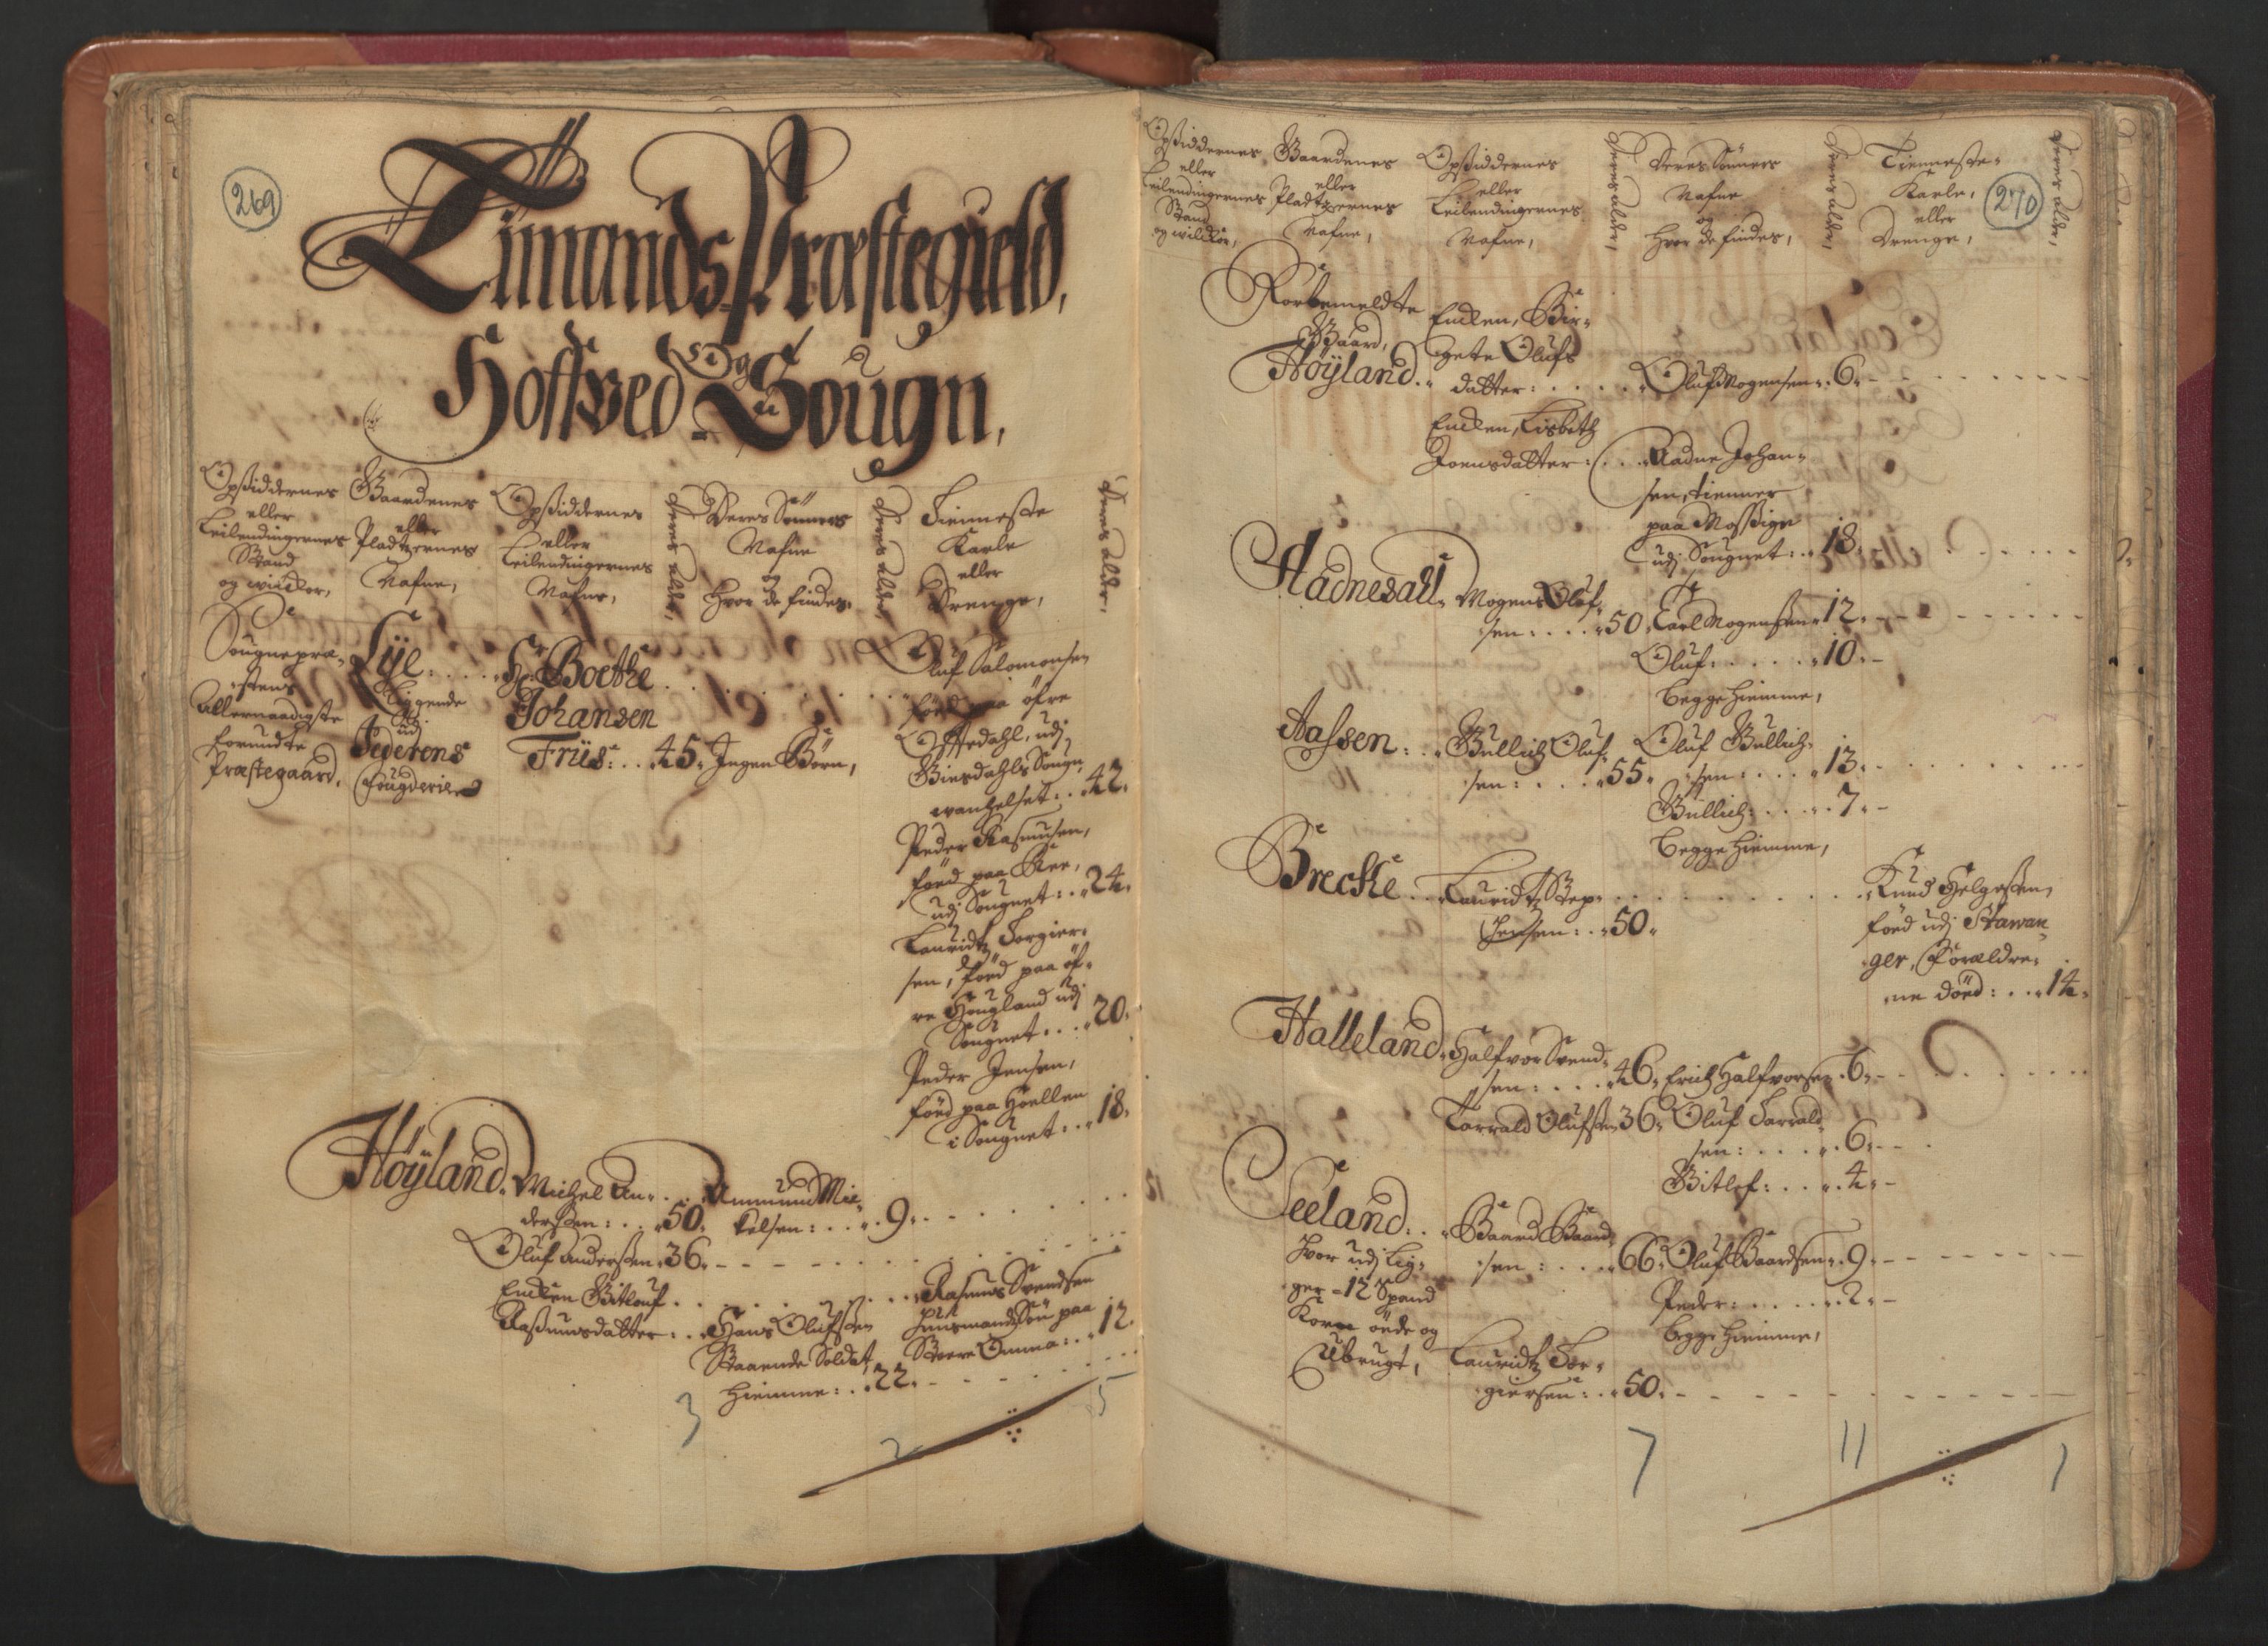 269
Timands Præstegield,
Og
Hoffved Sougn,
Opsiddernes
eller
Leilendingernes
Stand
og wilckor,
Gaardenes
eller
Pladtzernes
Nafne,
Opsiddernes
eller
Leilendingernes
Nafne,
Deres alder,
Deres Sönners
Nafne
og
Hvor de findes,
Deres alder,
Tienneste
Karle
eller
Drenge,
Deres alder,
Sougnepræ-
stens
allernaadigste
forundte
Præstegaard,
Lÿe
Liggende
udj
Jederens
Fougderie
Hr: Boethe
Johansen
Friis: . . 45.
Ingen Börn,
Oluf Salomonsen
föed paa öfre
Oftedahl, udj
Biesdahls Sougn,
wanhelset: . . 42.
Peder Rasmusen,
föed paa Ree,
udj Sougnet: . . 24.
Lauridtz Torgier-
sen, föed paa öf-
re Hougland udj
Sougnet: . . 20.
Peder Jensen,
föed paa Hoellen
i Sougnet: . . 18.
Höÿland. Michel An-
dersen: . . 50.
Ammund Mic-
kelsen: . . 9.
Oluf Andersen. 36.
Encken Bitlouf
Rasmusdatter: . .
Hans Olufsen
Staaende Soldat,
hiemme: . . 22.
Rasmus Svendsen
Huusmands Sön paa
Store Omma: . . 12.
3 2 5
270
Opsiddernes
eller
Leilendingernes
Stand
og wilckor,
Gaardenes
eller
Pladtzernes
Nafne,
Opsiddernes
eller
Leilendingernes
Nafne,
Deres alder,
Deres Sönners
Nafne
og
Hvor de findes,
Deres alder,
Tienneste-
Karle,
eller
Drenge,
Deres alder,
Forbemeldte
Gaard,
Höÿland.
Encken, Bir-
gete Olufs
datter: . . . .
Oluf Mogensen. 6.
Encken, Lisbeth
Joensdatter: . . .
Aadne Johan-
sen, tienner
paa Mossige
udj Sougnet: . . 18.
Aadnesall. Mogens Oluf-
sen: . . . 50.
Carl Mogensen 12.
Oluf: . . . . 10.
begge hiemme,
Aassen: . . Bullich Oluf-
sen: . . . 55.
Oluf Bullich-
sen: . . . 13.
Bullich: . . . 7.
begge hiemme,
Brecke . . Lauridtz Step-
Jensen: . . 50.
Knud Helgesen,
föed udj Stawan-
ger, Forældre-
ne döed: . . 14.
Halleland. Halfvor Svend-
sen: . . . 46.
Erich Halfvorsen. 6.
Torrald Olufsen 36.
Oluf Torrald-
sen: . . . . 6.
Bitlef: . . . 4.
Seeland: . . Baard Baard-
sen: . . . 66.
Oluf Baardsen. 9.
Hvor udj lig-
ger - 12 Spand
Korn öede og
Ubrugt,
Peder: . . . . 2.
begge hiemme,
Lauridtz Tor-
giersen: . . 50.
7 11 1